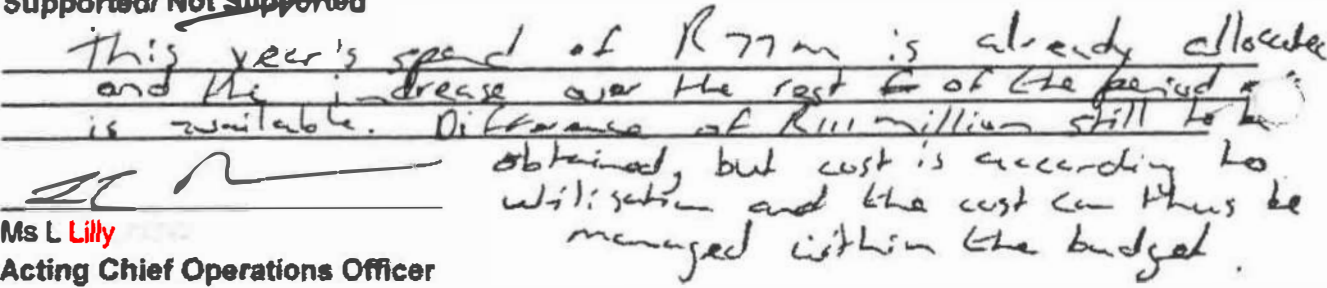 Supported/ Not supported
This year's spend of R77m is already allocated
and the increase over the rest of the period
is available. Difference of R111 million still to be
obtained, but cost is according to
utilisation and the cost can thus be
managed within the budget.
Ms L Lilly
Acting Chief Operations Officer